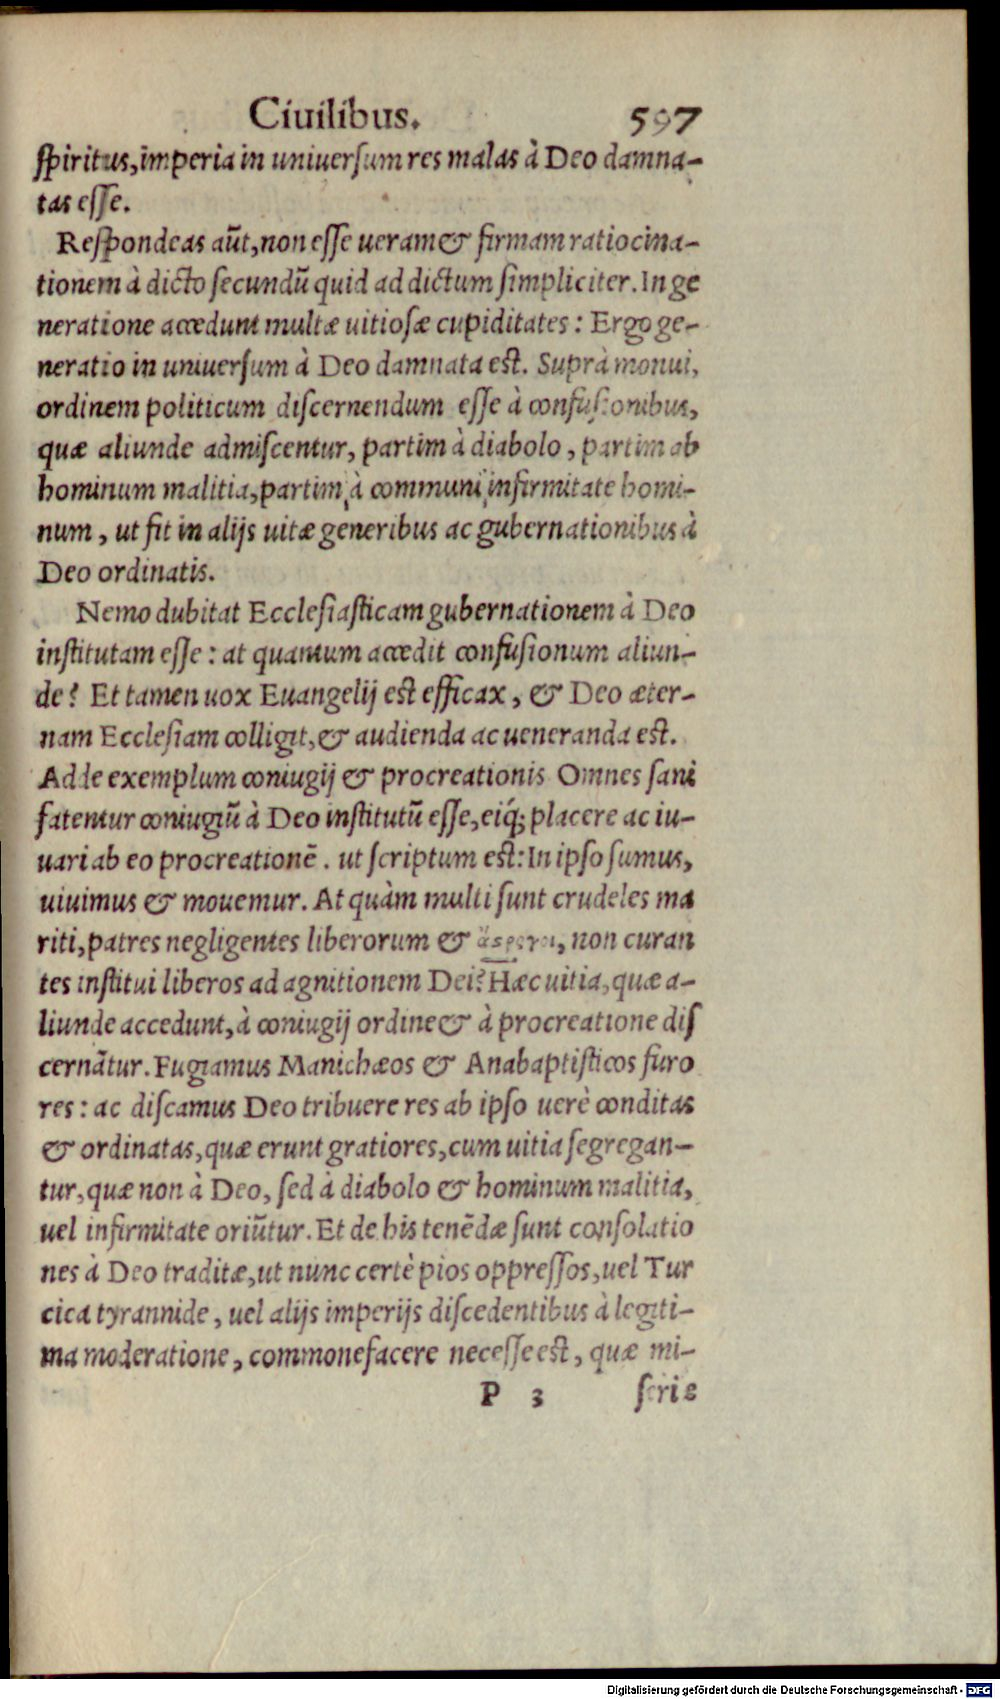 Ciuilibus. 597
ſpiritus, imperia in uniuerſum res malas à Deo damna-
tas eſſe.
Reſpondeas aūt, non eſſe ueram & firmam ratiocina-
tionem à dicto ſecundū quid ad dictum ſimpliciter. In ge
neratione accedunt multæ uitioſæ cupiditates: Ergo ge-
neratio in uniuerſum à Deo damnata eſt. Suprà monui,
ordinem politicum diſcernendum eſſe à confuſionibus,
quæ aliunde admiſcentur, partim à diabolo, partim ab
hominum malitia, partim à communi infirmitate homi-
num, ut fit in alijs uitæ generibus ac gubernationibus à
Deo ordinatis.
Nemo dubitat Eccleſiaſticam gubernationem à Deo
inſtitutam eſſe: at quantum accedit confuſionum aliun-
de? Et tamen uox Euangelij eſt efficax, & Deo æter-
nam Eccleſiam colligit, & audienda ac ueneranda eſt.
Adde exemplum coniugij & procreationis Omnes ſani
fatentur coniugiū à Deo inſtitutū eſſe, eiq́; placere ac iu-
uari ab eo procreationē. ut ſcriptum eſt: In ipſo ſumus,
uiuimus & mouemur. At quàm multi ſunt crudeles ma
riti, patres negligentes liberorum & ἄστοργοι, non curan
tes inſtitui liberos ad agnitionem Dei? Hæc uitia, quæ a-
liunde accedunt, à coniugij ordine & à procreatione diſ
cernātur. Fugiamus Manichæos & Anabaptiſticos furo
res: ac diſcamus Deo tribuere res ab ipſo uerè conditas
& ordinatas, quæ erunt gratiores, cum uitia ſegregan-
tur, quæ non à Deo, ſed à diabolo & hominum malitia,
uel infirmitate oriūtur. Et de his tenēdæ ſunt conſolatio
nes à Deo traditæ, ut nunc certè pios oppreſſos, uel Tur
cica tyrannide, uel alijs imperijs diſcedentibus à legiti-
ma moderatione, commonefacere neceſſe eſt, quæ mi-
P 3 ſeriæ
Digitalisierung gefördert durch die Deutsche Forschungsgemeinschaft - DFG